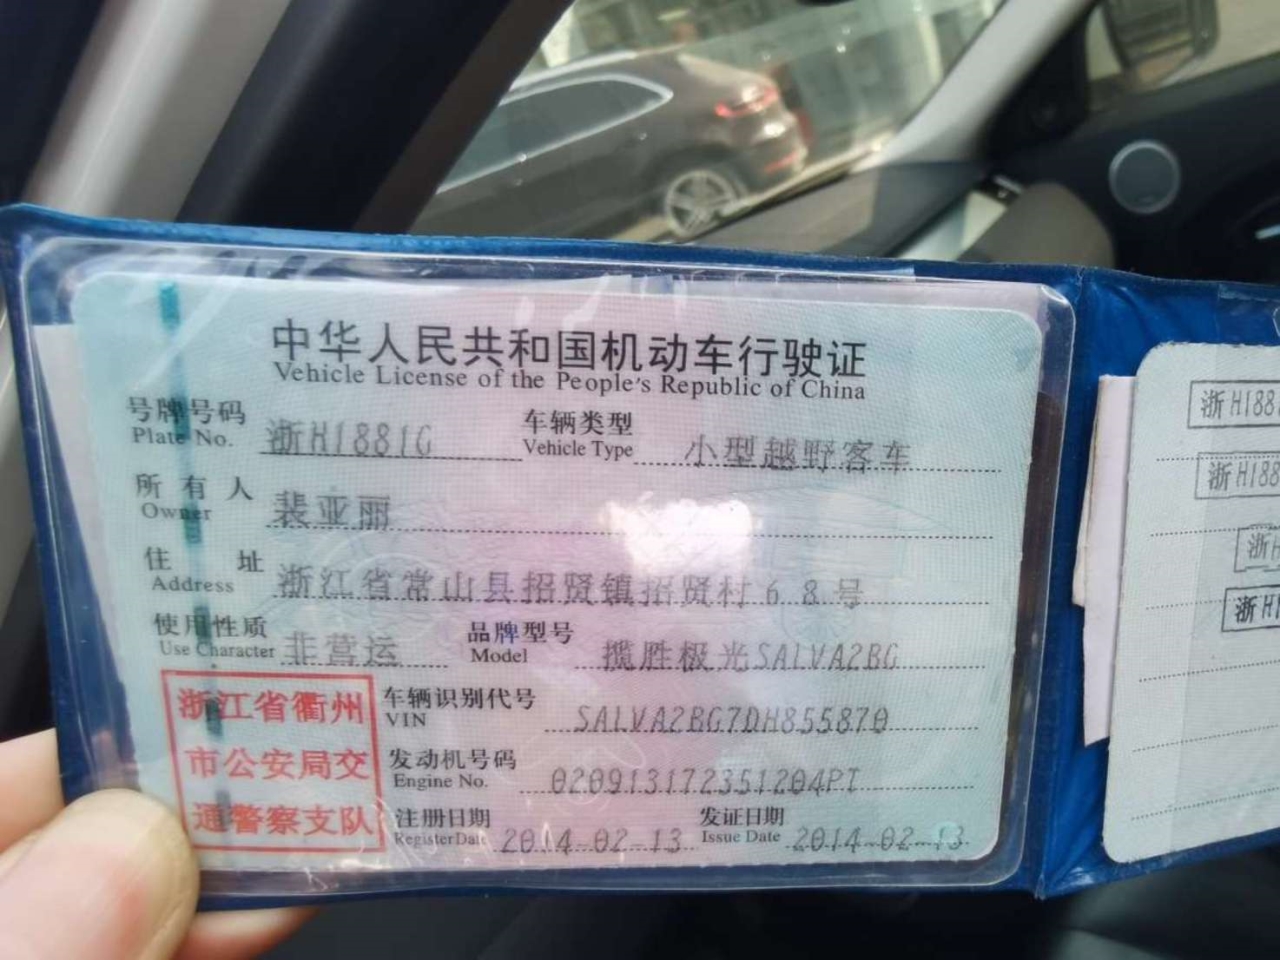 中华人民共和国机动车行驶证
Vehicle License of the People's Republic of China
号牌号码 浙H1881G 车辆类型 小型越野客车
Plate No. Vehicle Type
所有人 裴亚丽
Owner
住址 浙江省常山县招贤镇招贤村68号
Address
使用性质 非营运 品牌型号 揽胜极光SALVA2BG
Use Character Model
浙江省衢州
市公安局交
通警察支队
车辆识别代号 SALVA2BG7DH855870
VIN
发动机号码 020913172351204PT
Engine No.
注册日期 2014-02-13 发证日期 2014-02-13
Register Date Issue Date
浙H188
浙H188
浙H
浙H